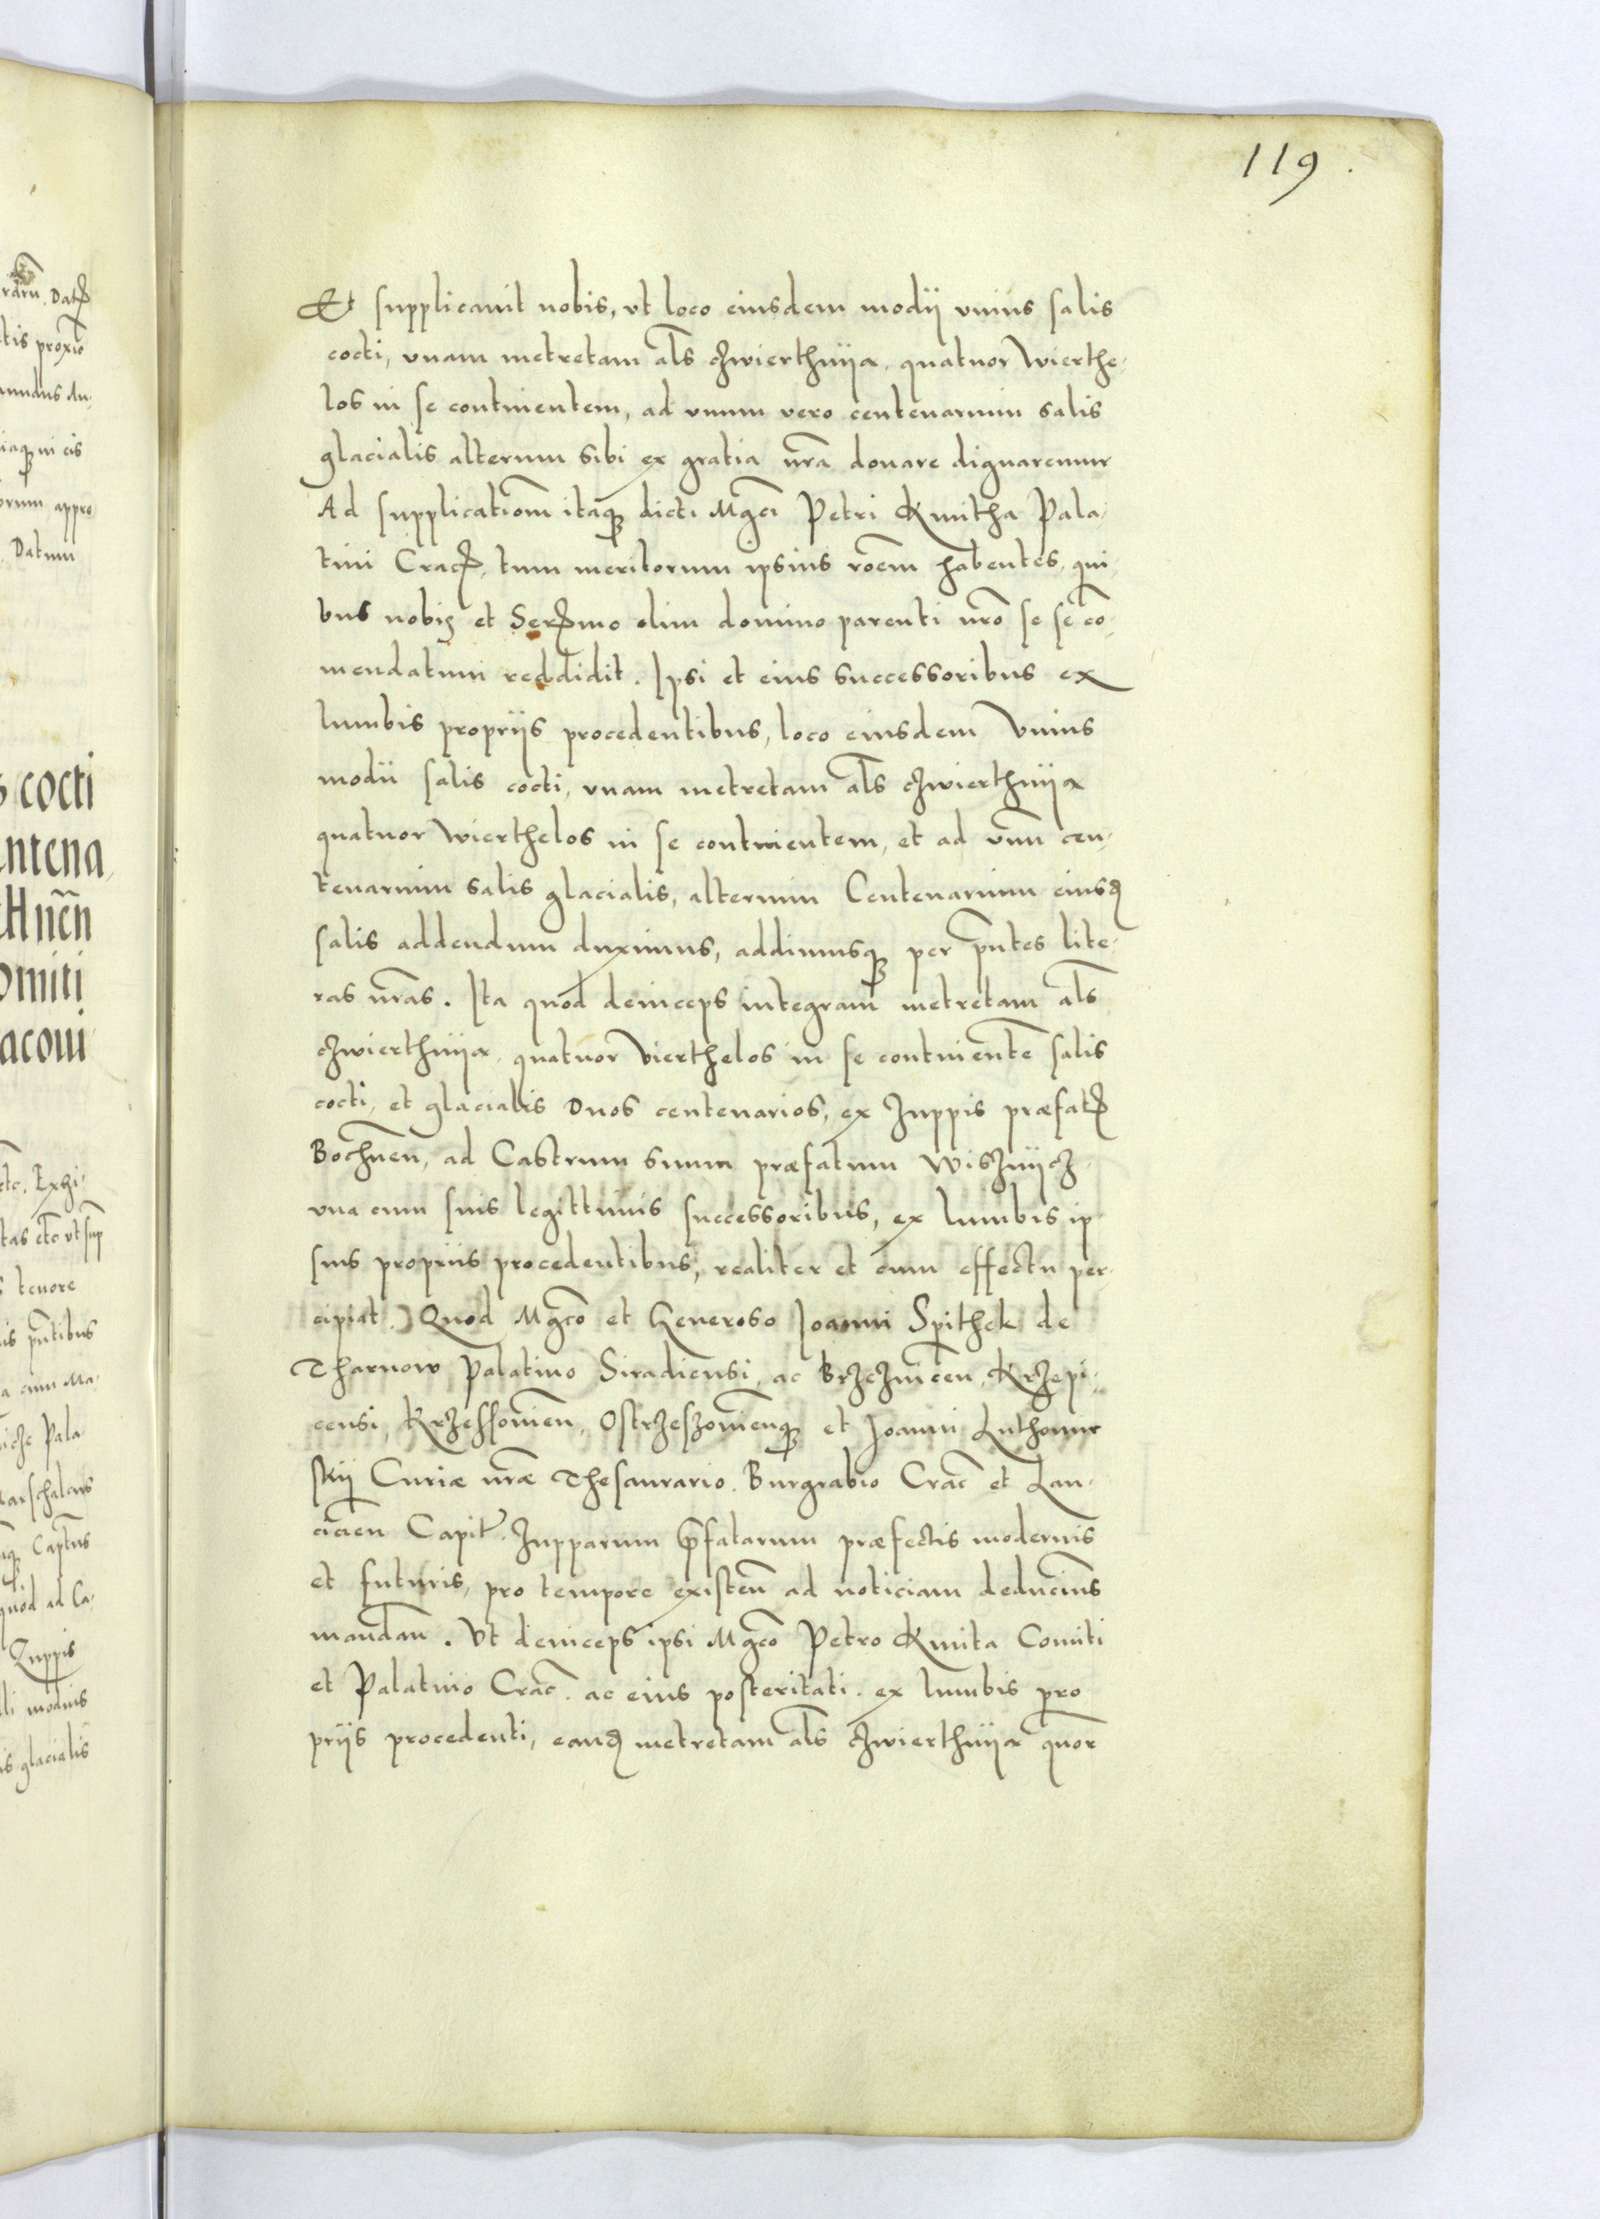 119.
Et supplicauit nobis, vt loco eiusdem modij vnius salis
cocti, vnam metretam als czwierthnija, quatuor Wierthe,
los in se continentem, ad vnum vero centenarium salis
glacialis alterum sibi ex gratia nr̃a donare dignaremur
Ad supplicatiom̃ itaqꝫ dicti Mgci Petri Kmitha Pala,
tini Cracꝭ, tum meritorum ipsius roem̃ habentes, qui,
bus nobis et Serꝭmo olim domino parenti nr̃o se se cõ,
mendatum reddidit. Ipsi et eius successoribus ex
lumbis proprijs procedentibus, loco eiusdem Vnius
modii salis cocti, vnam metretam als czwierthnija
quatuor Wierthelos in se continentem, et ad vnũ cen,
tenarium salis glacialis, alterum Centenarium eiusꝺ
salis addendum duximus, addimusqꝫ per pñtes lite,
ras nr̃as. Ita quod deinceps integram metretam als
czwierthnija, quatuor Vierthelos in se continentẽ salis
cocti, et glacialis Duos centenarios, ex Zuppis præfatꝭ
Bochneñ, ad Castrum suum præfatum Wisznijcz,
vna cum suis legittimis successoribus, ex lumbis ip
sius propriis procedentibus, realiter et cum effectu per,
cipiat.) Quod Mgco et Generoso Joanni Spithek de
Tharnow Palatino Siradiensi, ac Brzezniceñ, Krzepi,
censi, Krzessouieñ, Ostrzeszouieñqꝫ et Joanni Luthomir
skij Curiæ nr̃æ Thesaurario. Burgrabio Crac̃ et Lan,
cicieñ Capit. Zupparum p̃fatarum præfectis modernis
et futuris, pro tempore existeñ ad noticiam deducimus
mandañ. Vt deinceps ipsi Mgco Petro Kmita Comiti
et Palatino Crac̃. ac eius posteritati. ex lumbis pro
prijs procedenti, eanꝺ metretam als czwierthnija quõr